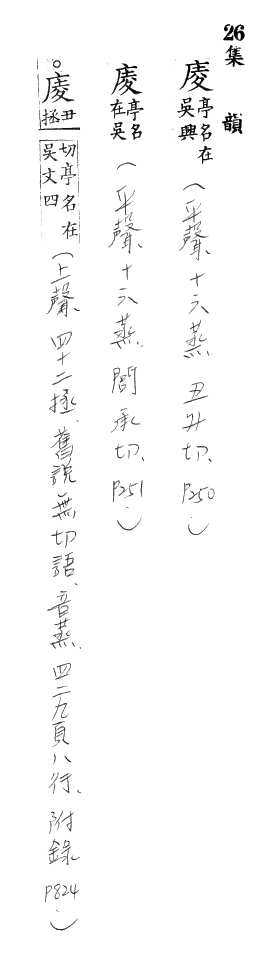 26 集韻
庱 亭名在吳興 (平聲、十六蒸 丑升切、P250。)
庱 亭名在吳 (平聲、十六蒸、閭承切、P251。)
。庱 丑拯切亭名在吳文四 (上聲、四十二拯、舊說無切語、音蒸、四二九頁八行、附錄 P824。)